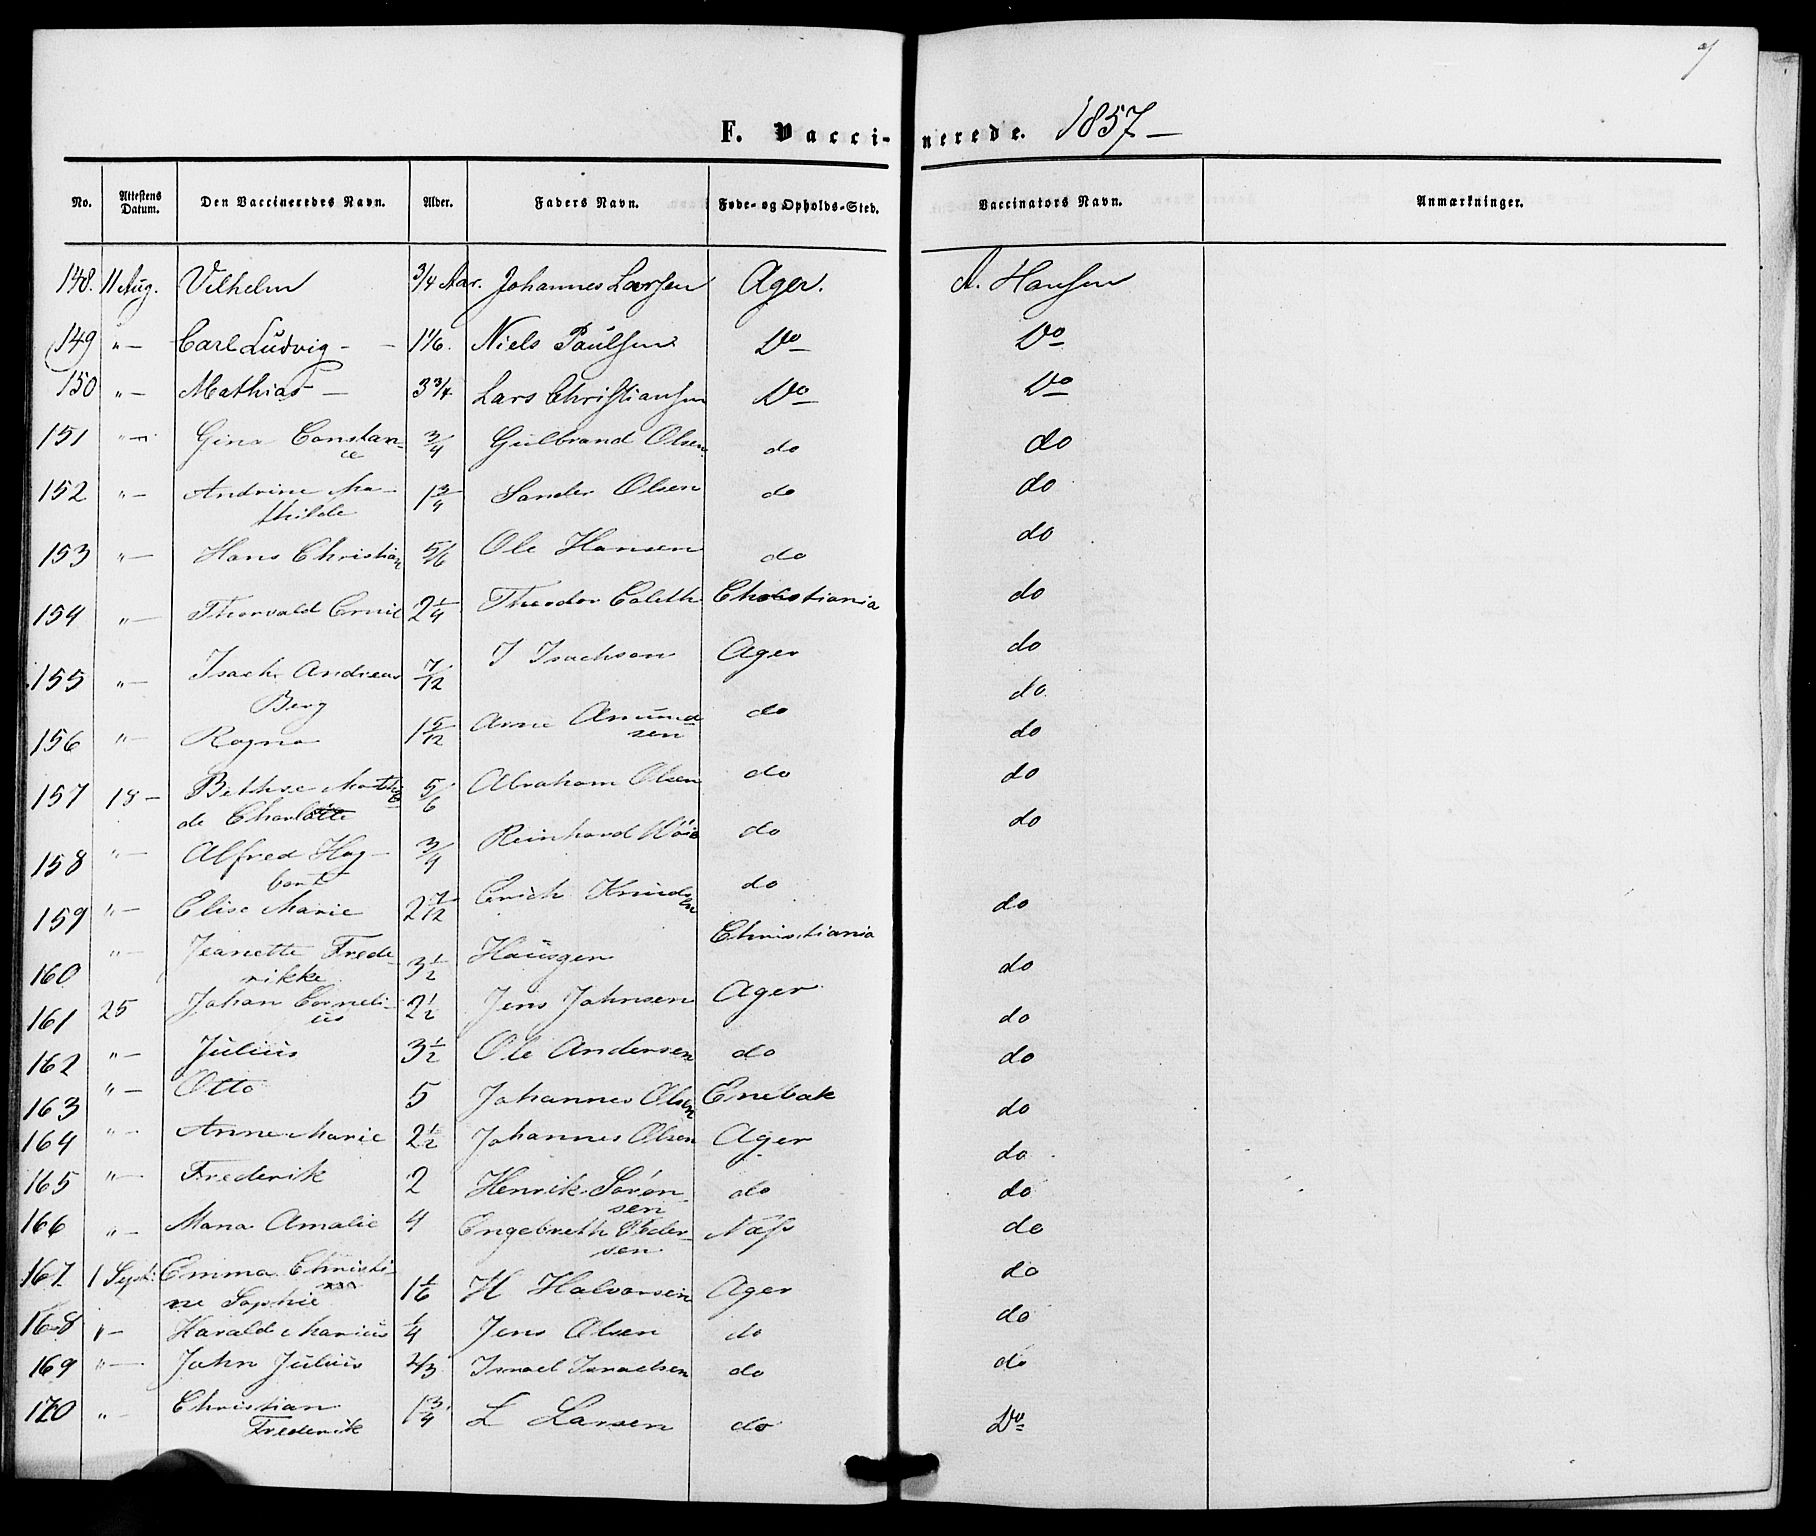 F. Vaccinerede. 1857 —
No. Attestens Datum. Den Vaccineredes Navn. Alder. Faders Navn. Føde- og Opholds-Sted. Vaccinators Navn. Anmærkninger.
148. 11 Aug. Vilhelm 3/4 Aar. Johannes Larsen Ager. A. Hansen
149 " — Carl Ludvig - - 1 1/6. Niels Paulsen Do Do
150 " — Mathias — 3 3/4 Lars Christiansen Do Do
151 " — Gina Constan-
ce 3/4 Gulbrand Olsen do do
152 " — Andrine Ma-
thilde 1 3/4 Sander Olsen do do
153 " — Hans Christian 5/6 Ole Hansen do do
154 " — Thorvald Emil 2 1/4 Theodor Coleth Christiania do
155 " — Isach Andreas
Berg 7/12 I Isachsen Ager do
156 " — Ragna 1 5/12 Arne Amund-
sen do do
157 18 — Mathil-
de Charlotte 5/6 Abraham Olsen do do
158 " — Alfred Hag-
bart 3/4 Reinhard do do
159 " — Elise Marie 2 7/12 Erich Knudsen do do
160 " — Jeanette Frede-
rikke 3 1/2 Christiania do
161 25 Johan Corneli-
us 2 1/2 Jens Johnsen Ager do
162 " — Julius 3 1/2 Ole Andersen do do
163 " — Otto 5 Johannes Olsen Enebak do
164 " — Anne Marie 2 1/2 Johannes Olsen Ager do
165 " — Frederik 2 Henrik Søren-
sen do do
166 " — Mana Amalie 4 Engebreth Peder-
sen Næss do
167 1 Sept: Emma Christi-
ne Sophie 1 1/6 H Halvorsen Ager do
168 " — Harald Marius 1/4 Jens Olsen do do
169 " — John Julius 2/3 Israel Israelsen do do
170 " — Christian
Frederik 1 3/4 L Larsen do Do